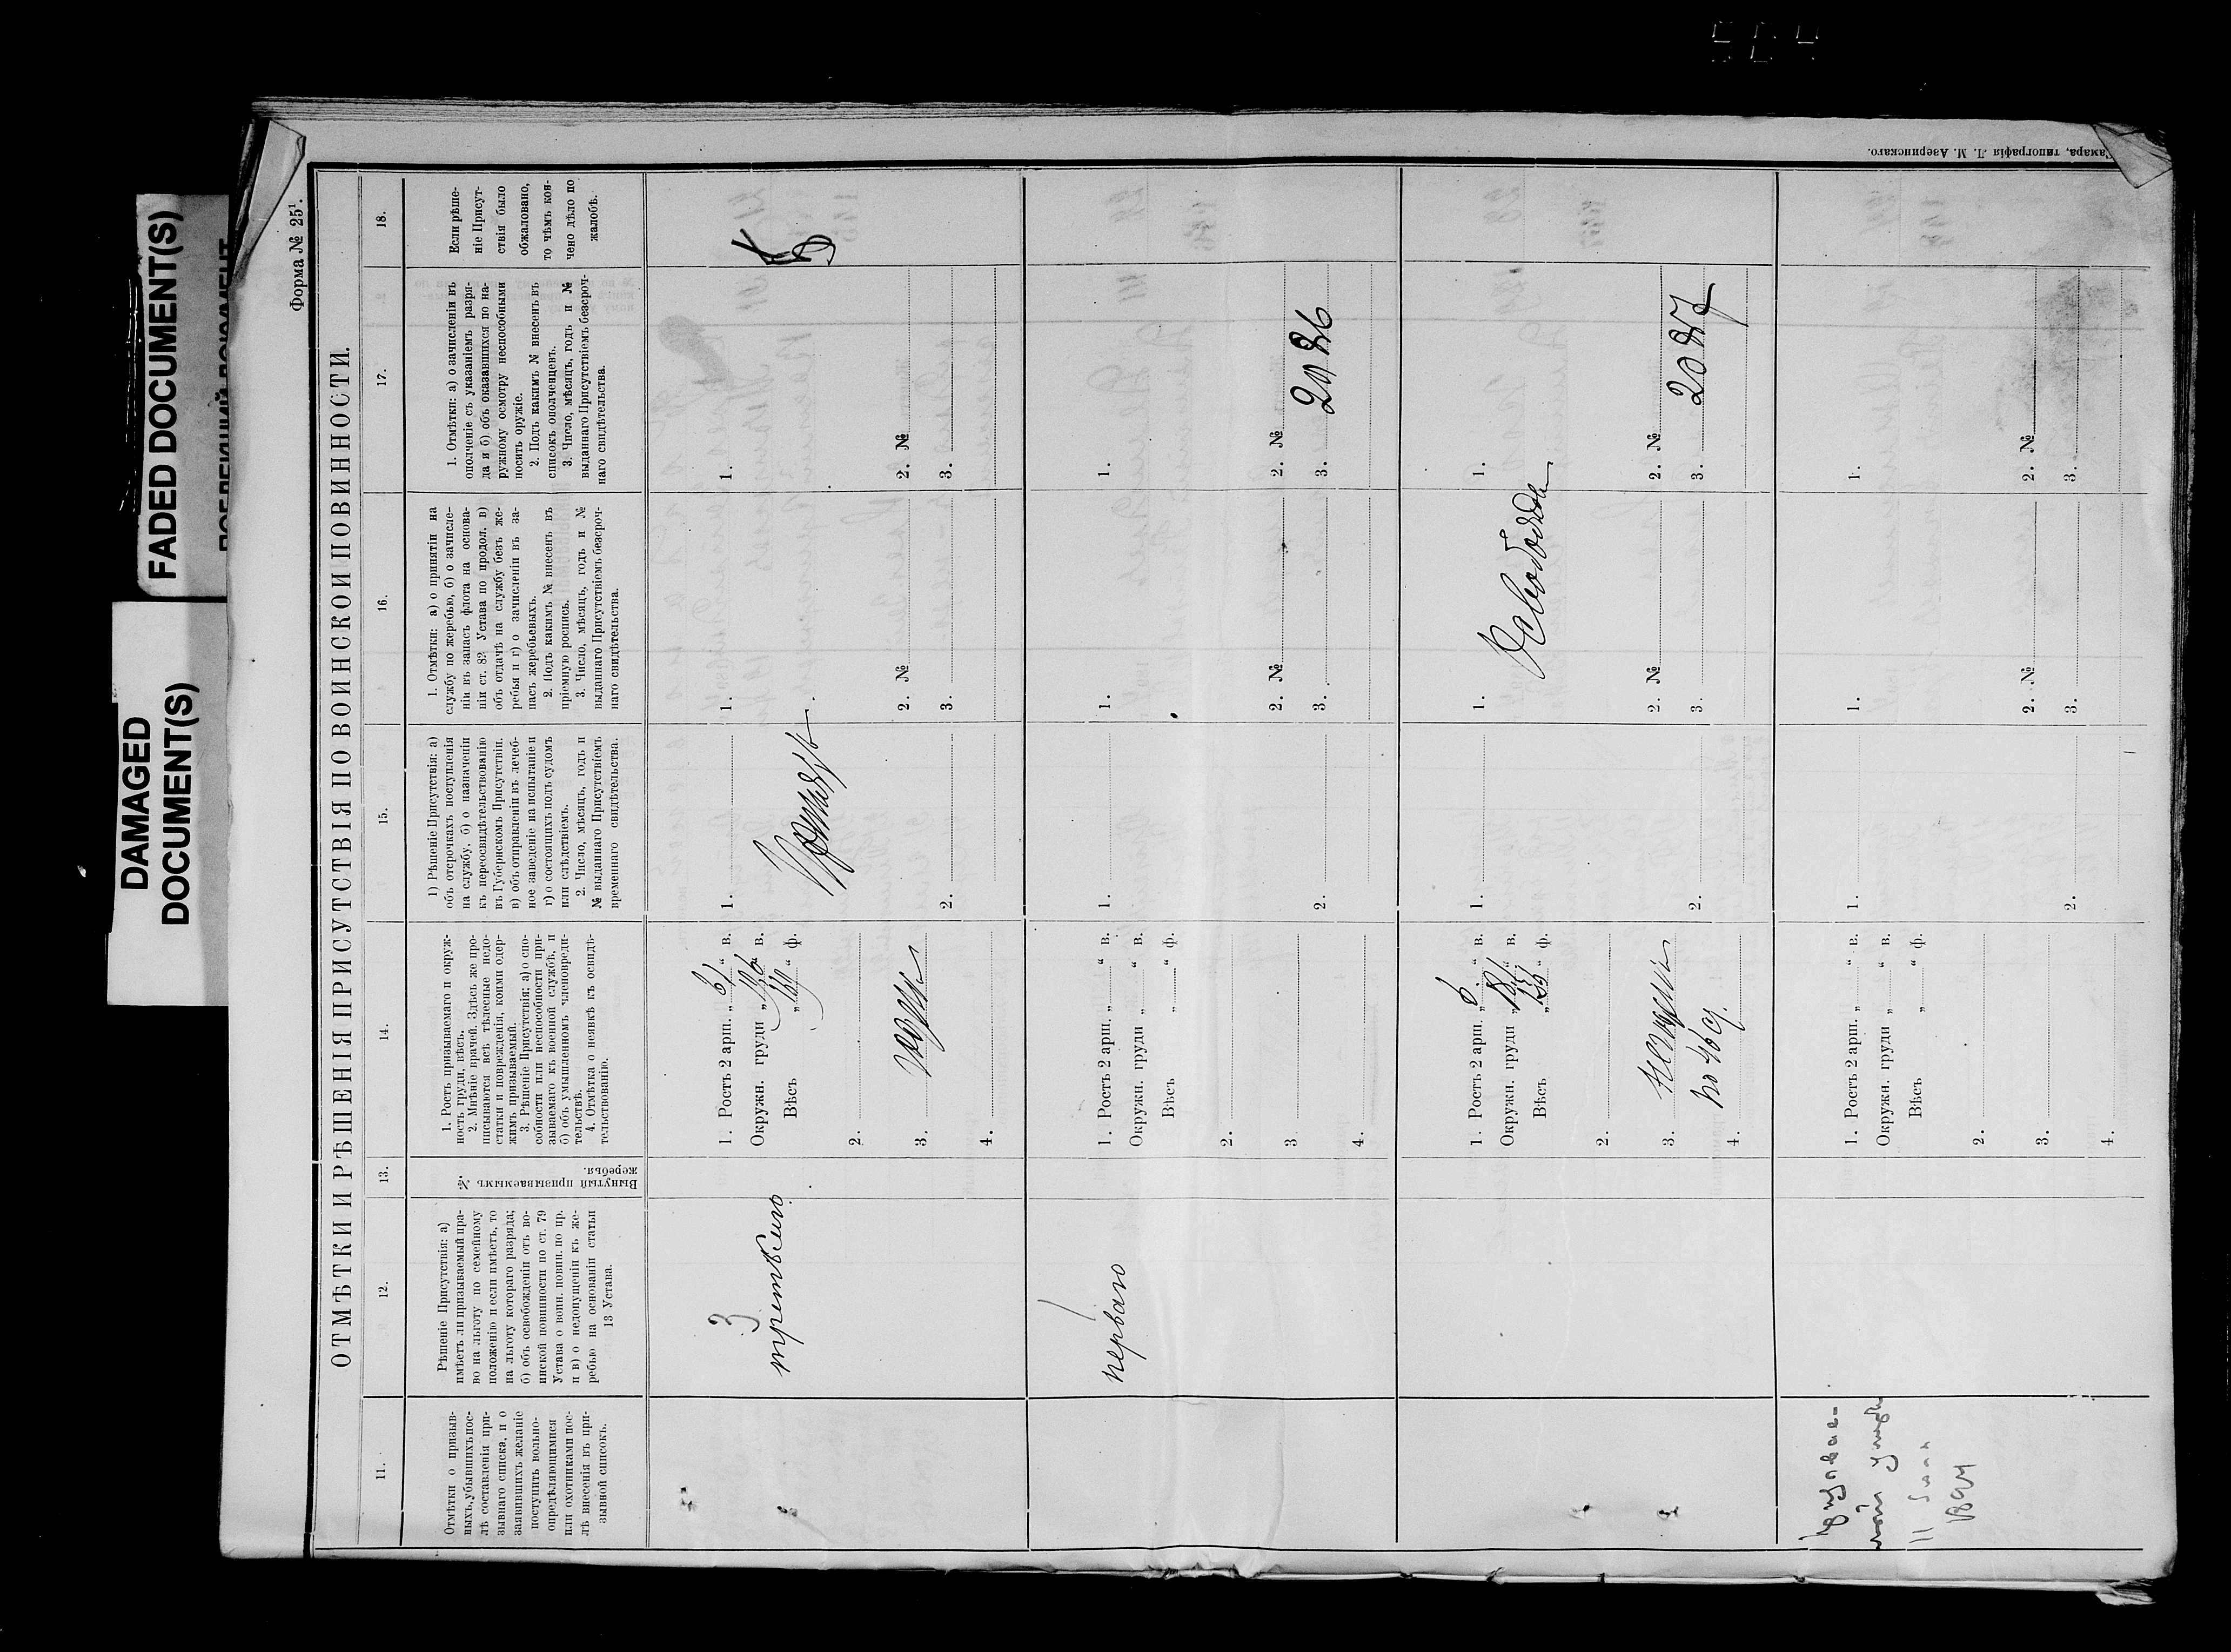 DAMAGED
DOCUMENT(S)
FADED DOCUMENT(S)
Форма № 25¹.
ОТМѢТКИ И РѢШЕНІЯ ПРИСУТСТВІЯ ПО ВОИНСКОЙ ПОВИННОСТИ.
11.
12.
13.
14.
15.
16.
17.
18.
Отмѣтки о призыв-
ныхъ, убывшихъ пос-
лѣ составленія при-
зывнаго списка, и о
заявившихъ желаніе
поступить вольно-
опредѣляющимися
или охотниками пос-
лѣ внесенія въ при-
зывной списокъ.
Рѣшеніе Присутствія: а)
имѣетъ ли призываемый пра-
во на льготу по семейному
положенію и если имѣетъ, то
на льготу котораго разряда;
б) объ освобожденіи отъ во-
инской повинности по ст. 79
Устава о воин. повин. по пр.
и в) о недопущеніи къ же-
ребью на основаніи статьи
13 Устава.
Вынутый призываемымъ №.
жеребья.
1. Ростъ призываемаго и окруж-
ность груди, вѣсъ.
2. Мнѣніе врачей. Здѣсь же про-
писываются всѣ тѣлесные недо-
статки и поврежденія, коими одер-
жимъ призываемый.
3. Рѣшеніе Присутствія; а) о спо-
собности или неспособности при-
зываемаго къ военной службѣ, и
б) объ умышленномъ членовреди-
тельствѣ.
4. Отмѣтка о неявкѣ къ освидѣ-
тельствованію.
1) Рѣшеніе Присутствія: а)
объ отсрочкахъ поступленія
на службу, б) о назначеніи
къ переосвидѣтельствованію
въ Губернскомъ Присутствіи,
в) объ отправленіи въ лечеб-
ное заведеніе на испытаніе и
г) о состоящихъ подъ судомъ
или слѣдствіемъ.
2. Число, мѣсяцъ, годъ и
№ выданнаго Присутствіемъ
временнаго свидѣтельства.
1. Отмѣтки: а) о принятіи на
службу по жеребью, б) о зачисле-
ніи въ запасъ флота на основа-
ніи ст. 82 Устава по продол. в)
объ отдачѣ на службу безъ же-
ребья и г) о зачисленіи въ за-
пасъ жеребьевыхъ.
2. Подъ какимъ № внесенъ въ
пріемную роспись.
3. Число, мѣсяцъ, годъ и №
выданнаго Присутствіемъ безсроч-
наго свидѣтельства.
1. Отмѣтки: а) о зачисленіи въ
ополченіе съ указаніемъ разря-
да и б) объ оказавшихся по на-
ружному осмотру неспособными
носить оружіе.
2. Подъ какимъ № внесенъ въ
списокъ ополченцевъ.
3. Число, мѣсяцъ, годъ и №
выданнаго Присутствіемъ безсроч-
наго свидѣтельства.
Если рѣше-
ніе Присут-
ствія было
обжаловано,
то чѣмъ кон-
чено дѣло по
жалобѣ.
3
третьяго
1. Ростъ 2 арш. „ 6 “ в.
Окружн. груди „ “ в.
Вѣсъ „ “ ф.
2.
3.
4.
1.
2.
1.
2. №
3.
1.
2. №
3.
1
перваго
1. Ростъ 2 арш. „ “ в.
Окружн. груди „ “ в.
Вѣсъ „ “ ф.
2.
3
4.
1.
2.
1.
2. №
3.
1.
2. №
3. 2086
1. Ростъ 2 арш. „ 6. “ в.
Окружн. груди „ “ в.
Вѣсъ „ “ ф.
2.
3.
по 46 с.
4.
1.
2.
1.
Освобожд
2. №
3.
1.
2. №
3. 2087
11
1894
1. Ростъ 2 арш. „ “ в.
Окружн. груди „ “ в.
Вѣсъ „ “ ф.
2.
3.
4.
1.
2.
1.
2. №
3.
1.
2. №
3.
Самара, типографія Л. М. Азеринскаго.